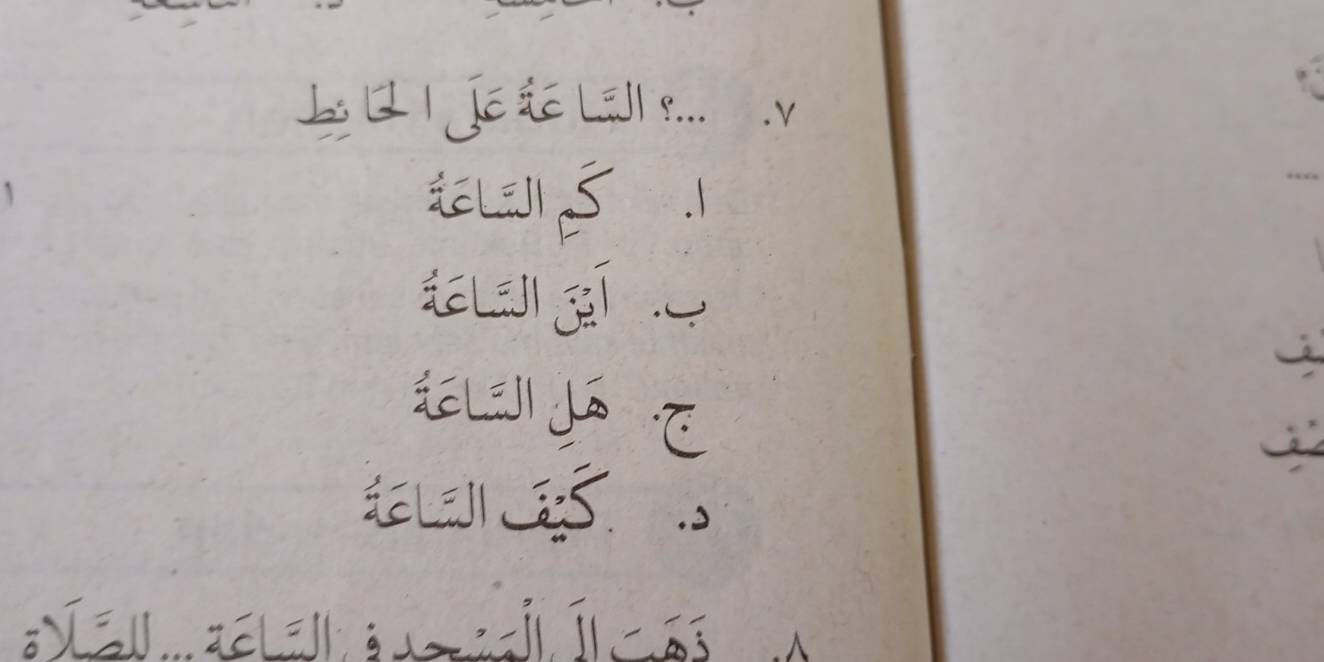 ٧. ...؟ السَّا عَةُ عَلَى ا لْحَا ئِطِ
ا. كَمِ السَّاعَةُ
ب. اَيْنَ السَّاعَةُ
ج. هَلِ السَّاعَةُ
د. كَيْفَ السَّاعَةُ
٨. ذَهَبَ اِلَى الْمَسْجِدِ فِي السَّاعَةِ ... لِلصَّلَاة